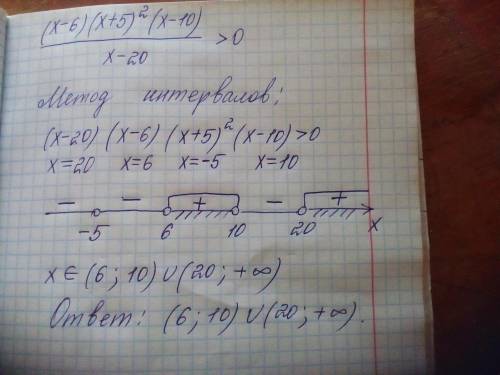 (x-6)(x+5)²(x-10)
x-20
>0
Метод интервалов:
(x-20) (x-6) (x+5)²(x-10)>0
x=20 x=6 x=-5 x=10
− − + − +
-5 6 10 20 x
x∈(6; 10)∪(20; +∞)
Ответ: (6; 10)∪(20; +∞).